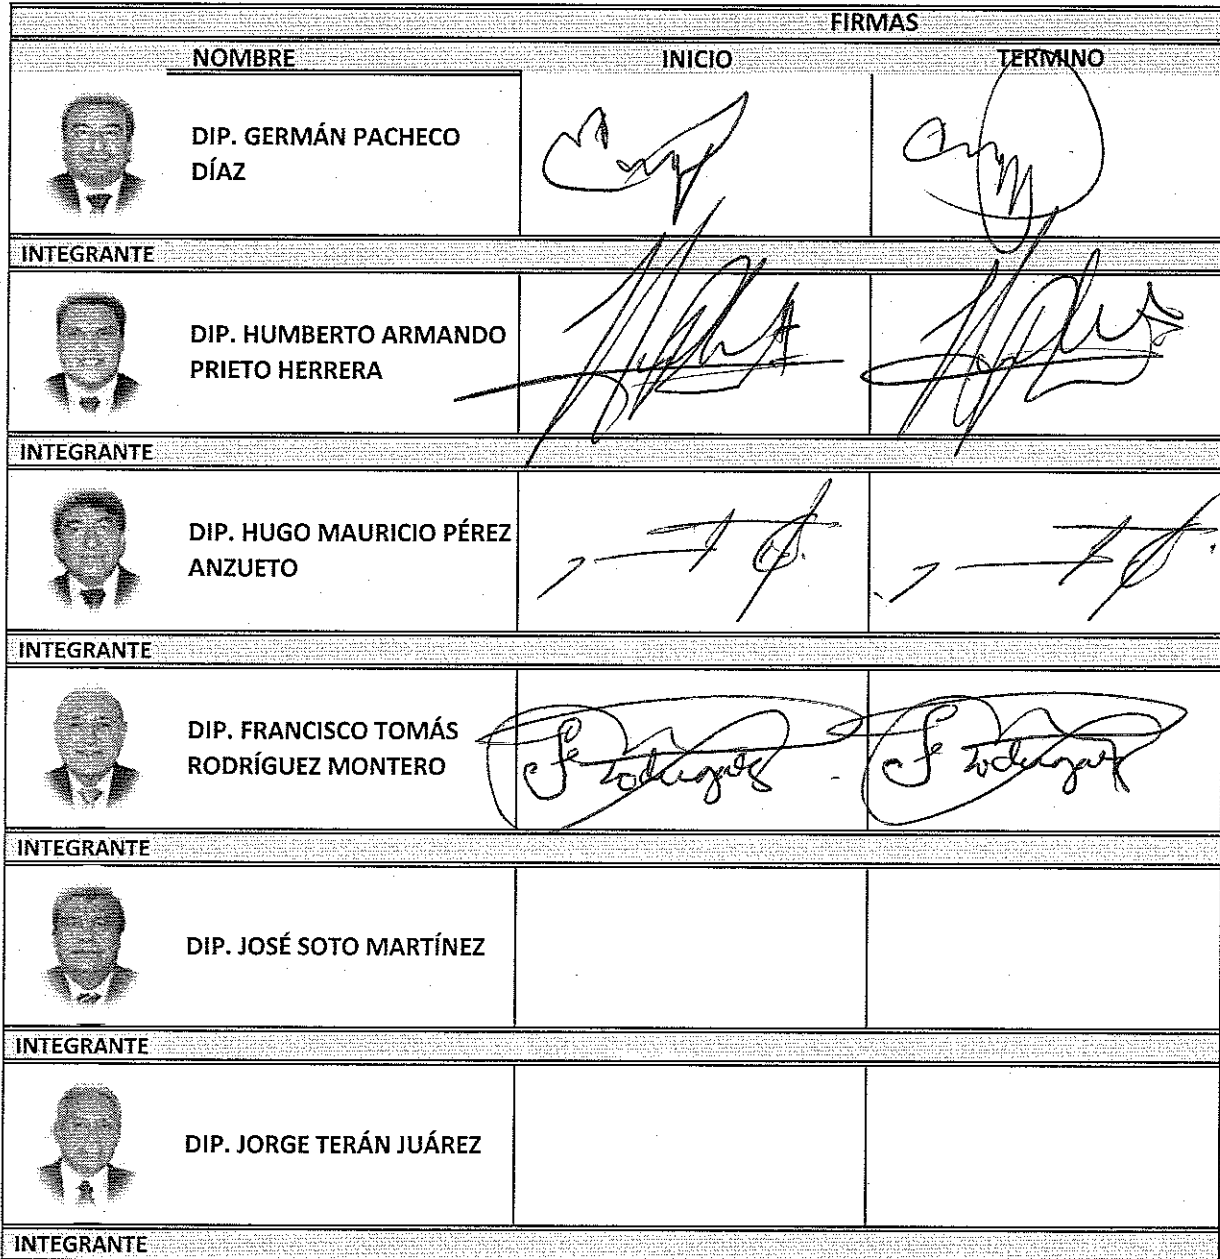 FIRMAS
NOMBRE INICIO TERMINO
DIP. GERMÁN PACHECO
DÍAZ
INTEGRANTE
DIP. HUMBERTO ARMANDO
PRIETO HERRERA
INTEGRANTE
DIP. HUGO MAURICIO PÉREZ
ANZUETO
INTEGRANTE
DIP. FRANCISCO TOMÁS
RODRÍGUEZ MONTERO
INTEGRANTE
DIP. JOSÉ SOTO MARTÍNEZ
INTEGRANTE
DIP. JORGE TERÁN JUÁREZ
INTEGRANTE